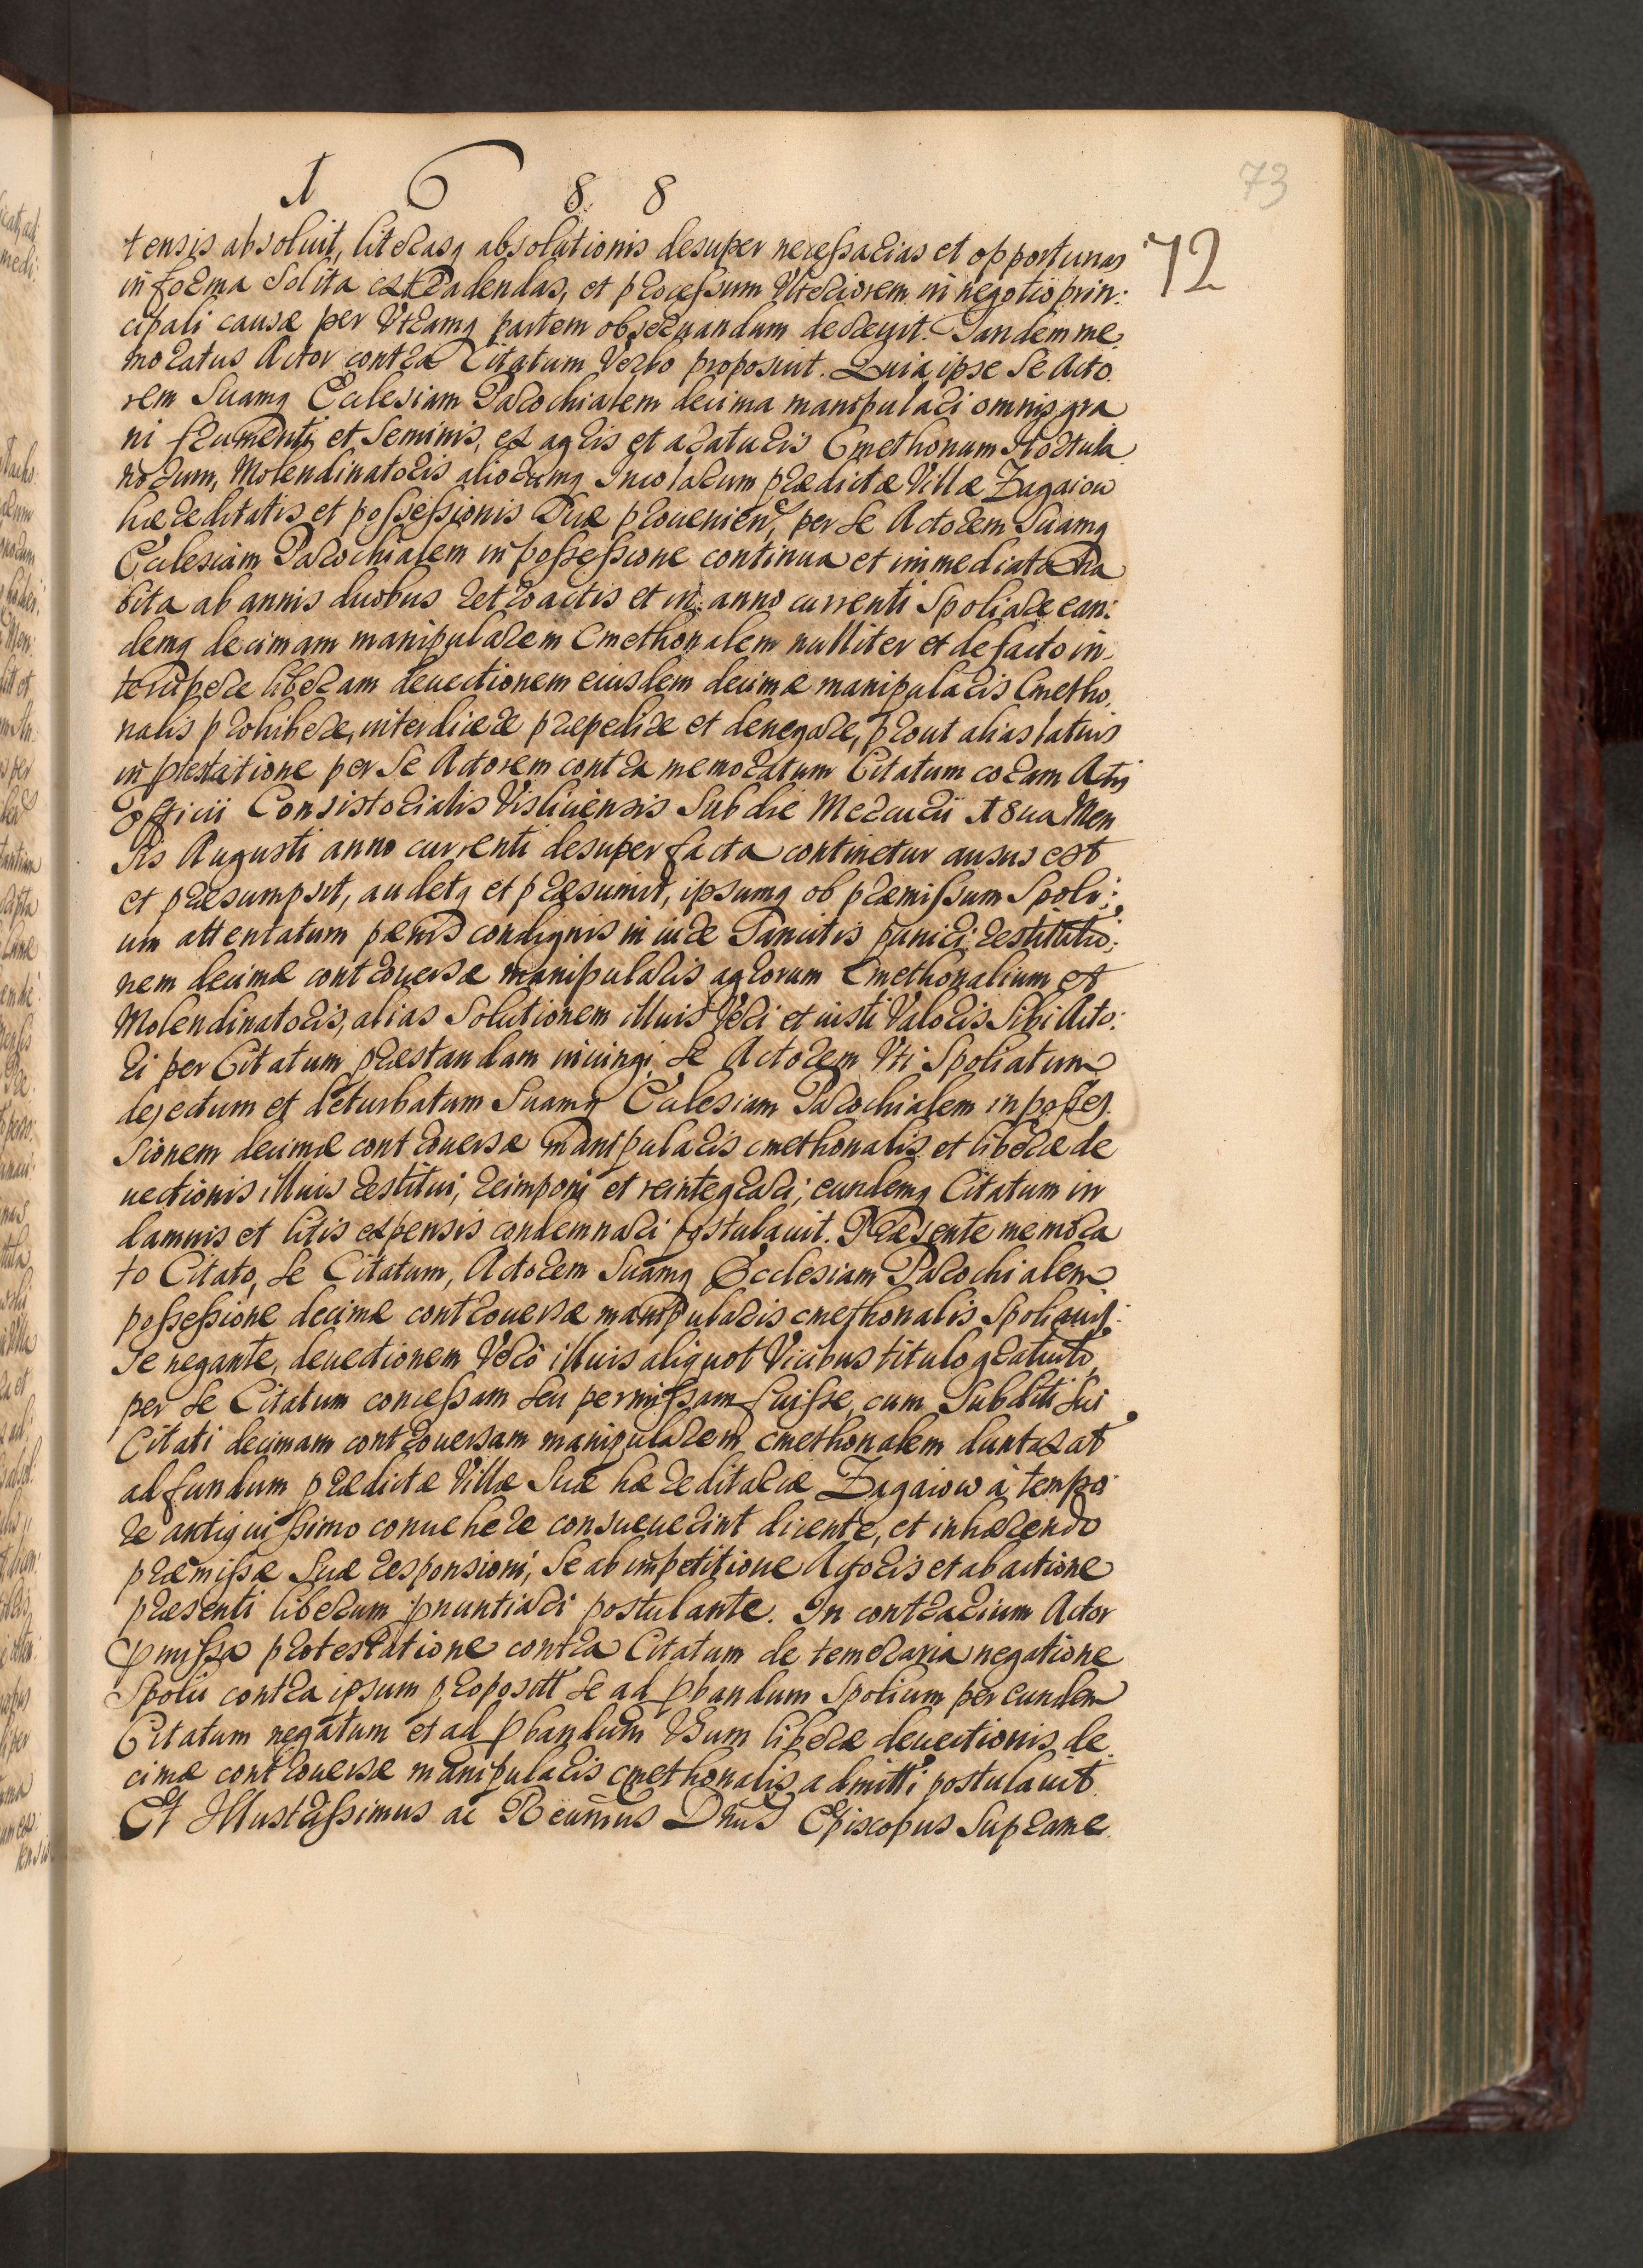 1 6 8 8
73
72
tensis absoluit, literasq absolutionis desuper necessarias et opportunas
in forma solita extradendas, et processum Vlteriorem in negotio prin:
cipali causæ per Vtramq partem obseruandum decreuit. Tandem me,
moratus Actor contra Citatum Verbo proposuit. Quia ipse Se Acto
rem Suamq Ecclesiam Parochialem decima manipulari omnis gra
ni frumenti et Seminis, ex agris et araturis Cmethonum Hortula
norum, Molendinatoris aliorumq Incolarum prædictæ Villæ Zagaiow
hæreditatis et possessionis Suæ prouenien, per Se Actorem Suamq
Ecclesiam Parochialem in possessione continua et immediata ha
bita ab annis duobus retroactis et in anno currenti Spoliare ean:
demq decimam manipularem Cmethonalem nulliter et de facto in,
tercipere liberam deuectionem eiusdem decimæ manipularis Cmetho,
nalis prohibere, interdicere præpedire et denegare, prout alias latius
in protestatione per Se Actorem contra memoratum Citatum coram Actis
Officii Consistorialis Visliciensis Sub die Mercurii 18ua Men
sis Augusti anno currenti desuper facta continetur ausus est
et præsumpsit, audetq et præsumit, ipsumq ob præmissum Spoli:
um attentatum pænis condignis in iure Sancitis puniri, restitutio:
nem decimæ controuersæ manipularis agrorum Cmethonalium et
Molendinatoris, alias Solutionem illius Veri et iusti Valoris Sibi Acto:
ri per Citatum præstandam iniungi, Se Actorem Vti Spoliatum
dejectum et deturbatum Suamq Ecclesiam Parochialem in posses
sionem decimæ controuersæ manipularis cmethonalis et liberæ de
uectionis illius restitui, reimponi et reintegrari; eundemq Citatum in
damnis et litis expensis condemnari postulauit. Præsente memora
to Citato, Se Citatum, Actorem Suamq Ecclesiam Parochialem
possessione decimæ controuersæ manipularis cmethonalis Spoliauis:
se negante, deuectionem Verò illius aliquot Vicibus titulo gratuito
per Se Citatum concessam seu permissam fuisse, cum Subditi Sui
Citati decimam controuersam manipularem cmethonalem duntaxat
ad fundum prædictæ Villæ Suæ hæreditariæ Zagaiow à tempo
re antiquissimo conuehere consueuerint dicente, et inhærendo
præmissæ Suæ responsioni, Se ab impetitione Actoris et ab actione
præsenti liberum pnuntiari postulante. In contrarium Actor
pmissa protestatione contra Citatum de temeraria negatione
Spolii contra ipsum proposuit Se ad pbandum Spolium per eundem
Citatum negatum et ad pbandum Vsum liberæ deuectionis de
cimæ controuersæ manipularis cmethonalis admitti postulauit.
Et Illustrissimus ac Reumus Dnus Episcopus Suprame